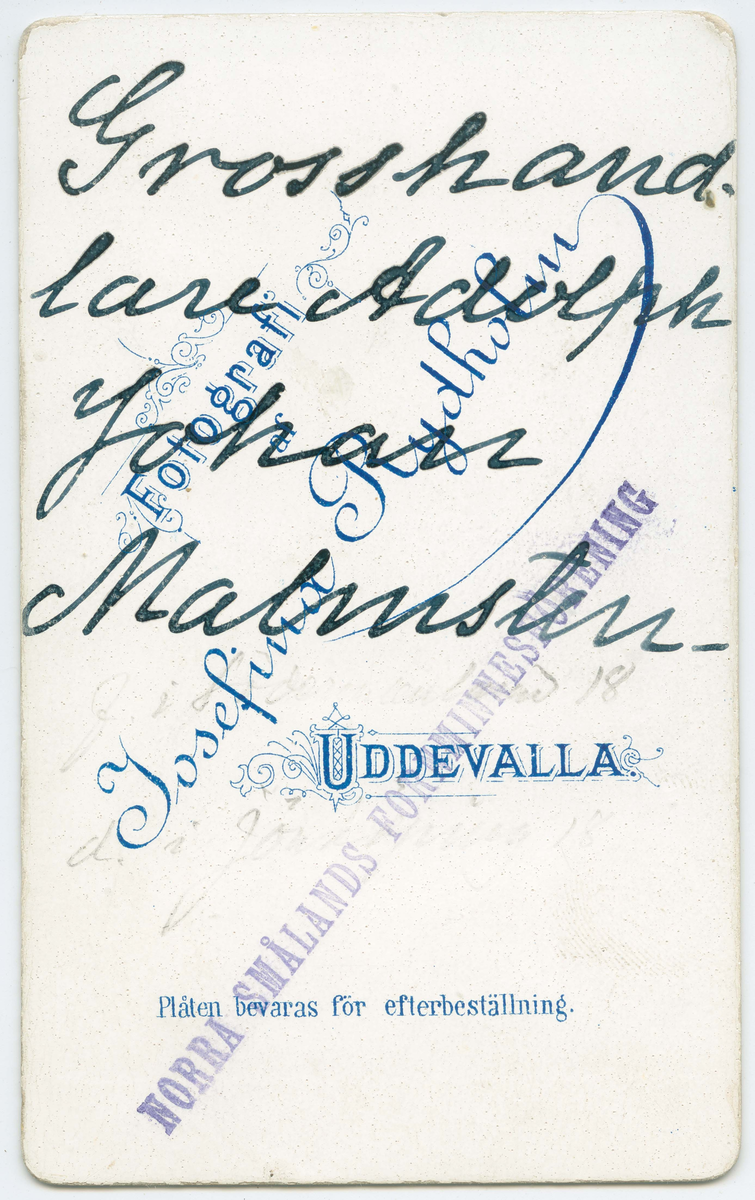 Grosshand-
lare Adolph
Johan
Malmsten-
Fotografi
af
Josefina Rydholm
UDDEVALLA.
d. i 18
Plåten bevaras för efterbeställning.
NORRA SMÅLANDS FORNMINNESFÖRENING